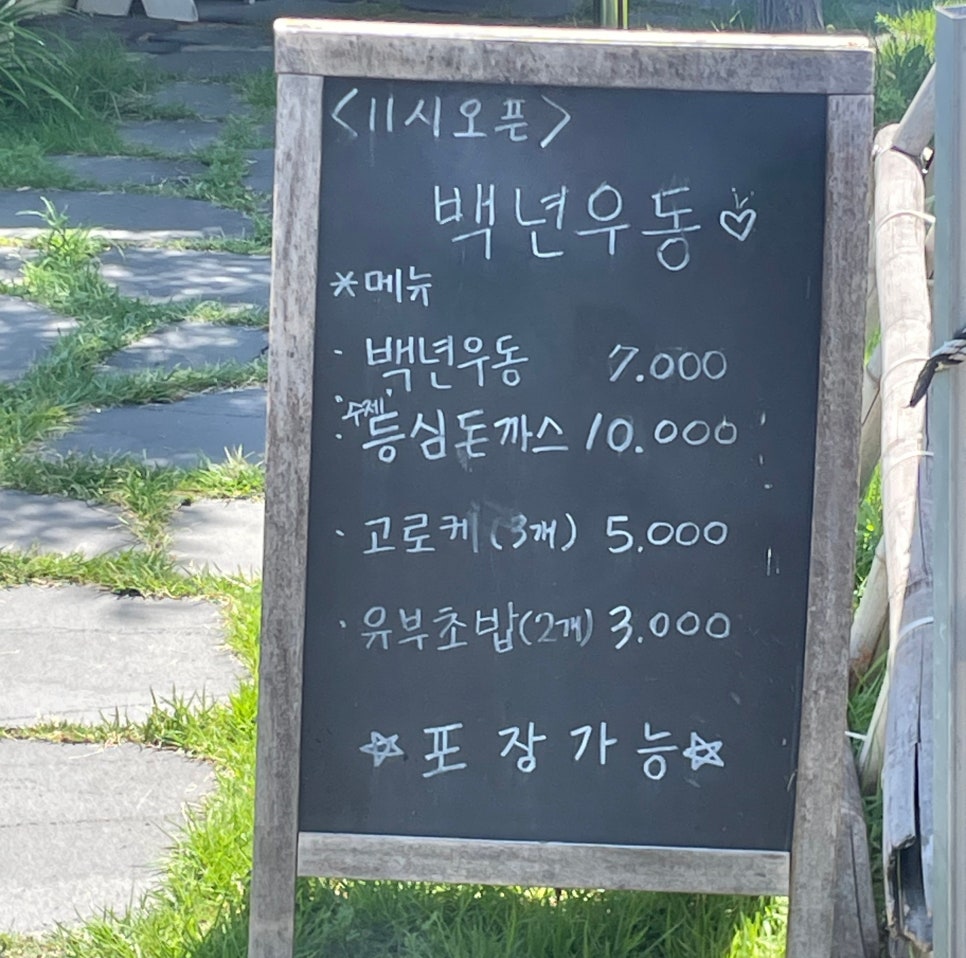 <11시오픈>
백년우동♡
*메뉴
· 백년우동 7.000
· "수제" 등심돈까스 10.000
· 고로케(3개) 5.000
· 유부초밥(2개) 3.000
☆포장가능☆